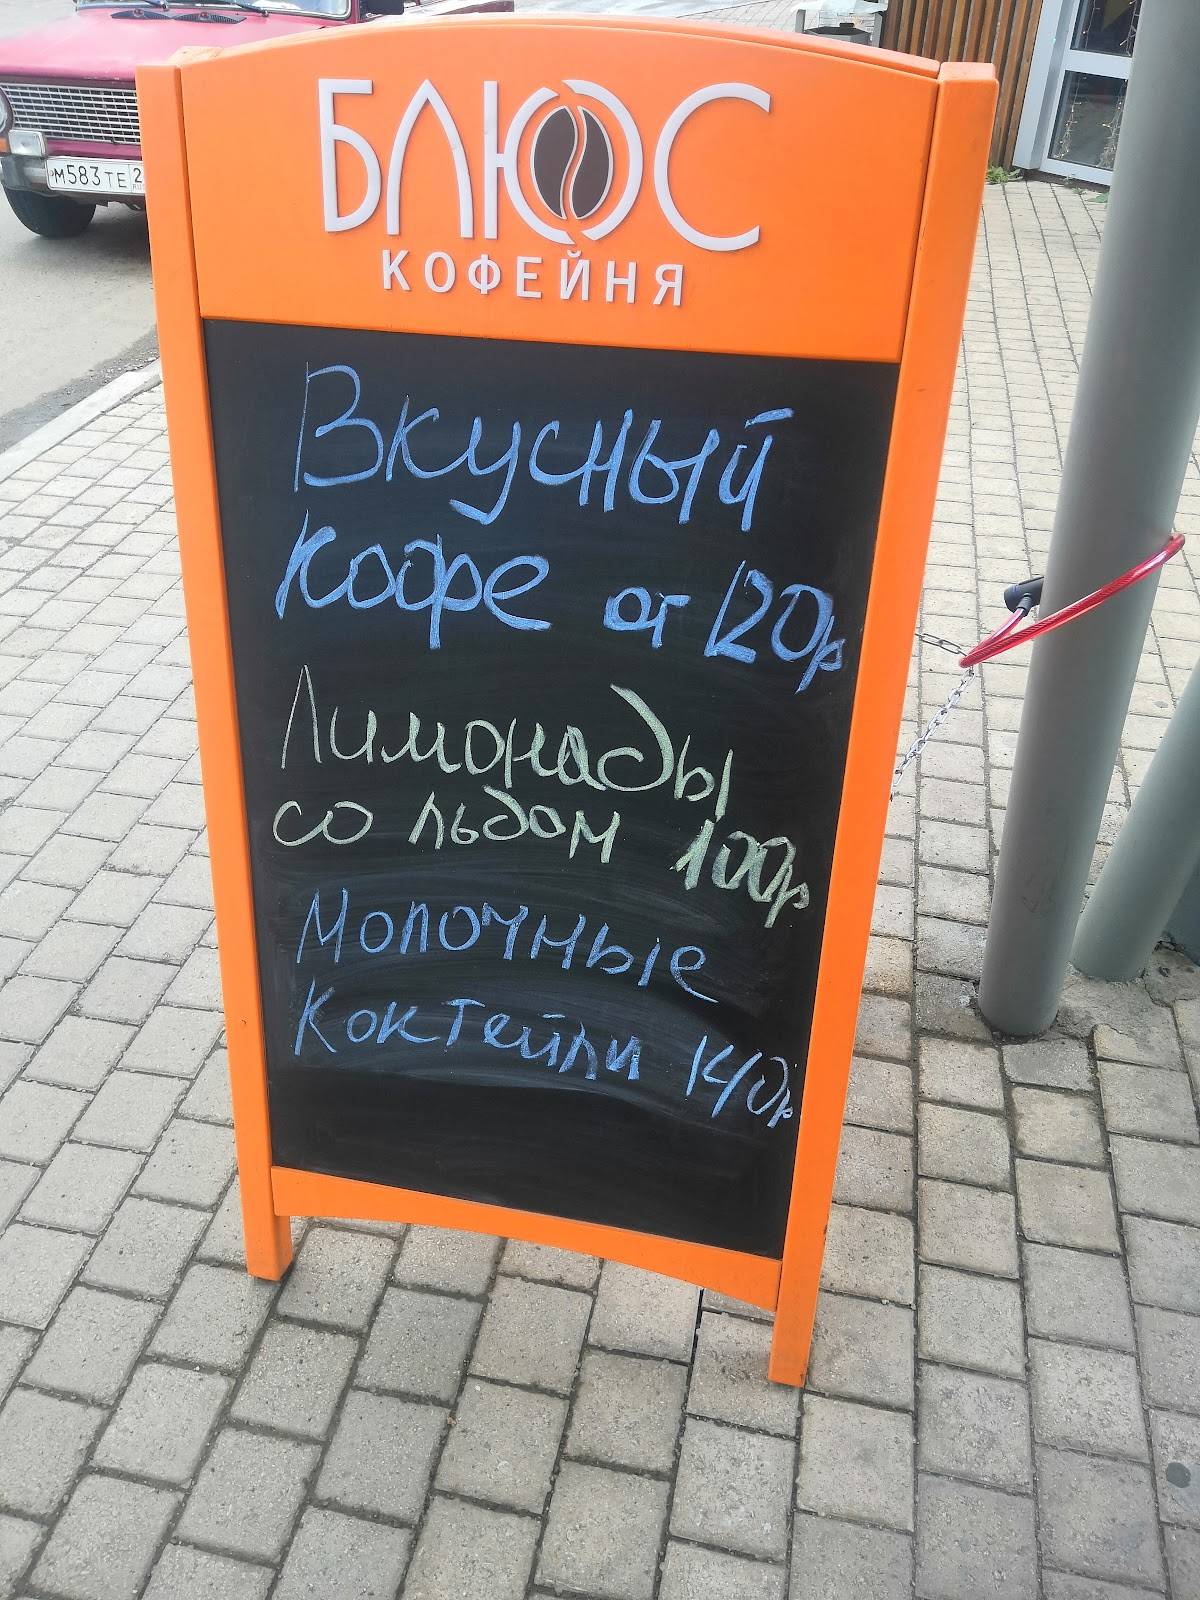 БЛЮС
КОФЕЙНЯ
Вкусный
кофе от 120р
Лимонады
со льдом 100р
Молочные
коктейли 140р
М583ТЕ 2